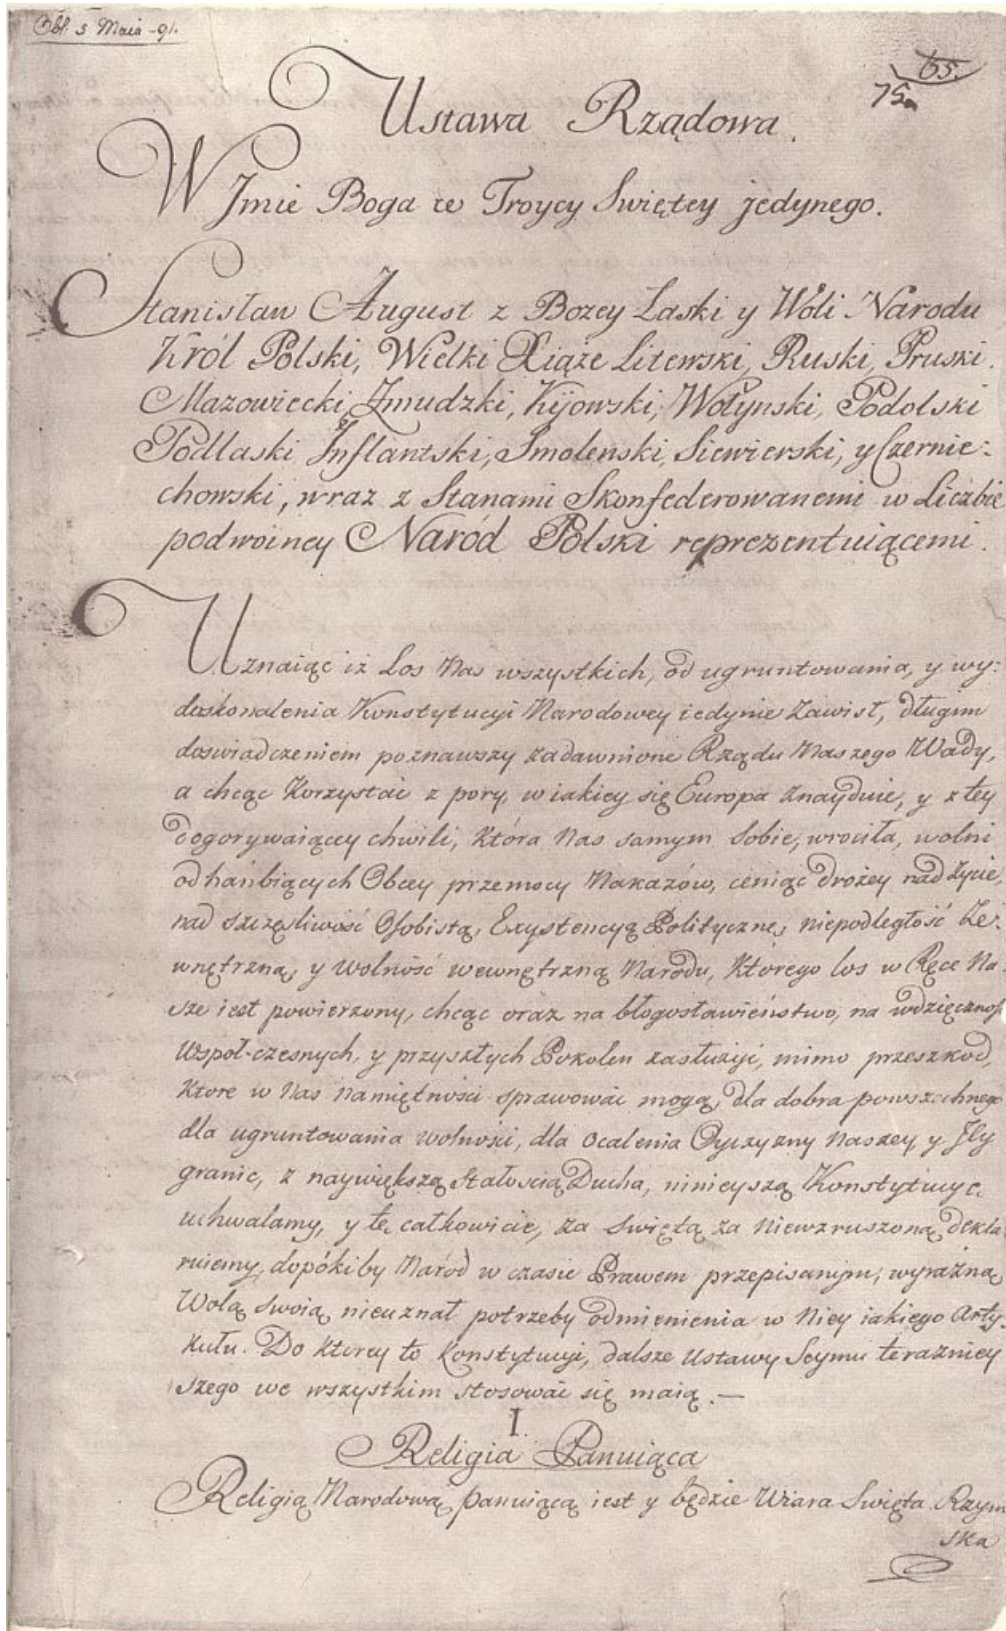 Obl. 5 Maia -91.
65.
75a
Ustawa Rządowa.
W Jmie Boga w Troycy Swiętey jedynego.
Stanisław August z Bozey Łaski y Woli Narodu
Król Polski, Wielki Xiąże Litewski, Ruski, Pruski,
Mazowiecki, Zmudzki, Kijowski, Wołynski, Podolski
Podlaski Jnflantski, Smolenski, Siewierski, y Czernie:
chowski, wraz z Stanami Skonfederowanemi w Liczbie
podwoiney Naród Polski reprezentuiącemi.
Uznaiąc iż Los Nas wszystkich, od ugruntowania, y wy:
doskonalenia Konstytucyi Narodowey iedynie Zawisł, długim
doswiadczeniem poznawszy zadawnione Rządu Naszego Wady,
a chcąc Korzystać z pory, w iakiey się Europa Znayduie, y z tey
dogorywaiącey chwili, która Nas samym Sobie, wrociła, wolni
od hańbiących Obcey przemocy Nakazów, ceniąc drożey nad Zycie,
nad szczęsliwość Osobistą, Exystencyą Polityczną, niepodległość Ze:
wnętrzną, y wolność wewnętrzną Narodu, Ktorego los w Ręce Na:
sze iest powierzony, chcąc oraz na błogosławieństwo, na wdzięczność
Współ-czesnych, y przyszłych Pokolen zasłużyć, mimo przeszkod,
Ktore w Nas Namiętności sprawować mogą, dla dobra powszechnego
dla ugruntowania wolności, dla Ocalenia Oyczyzny Naszey, y Jey
granic, z naywiększą Stałoscią Ducha, ninieyszą Konstytucyę
uchwalamy, y tę całkowicie, za swiętą za Niewzruszoną dekla:
ruiemy, dopókiby Naród w czasie Prawem przepisanym, wyraźną
Wolą swoią nieuznał potrzeby odmienienia w Niey iakiego Arty:
kułu. Do Ktorey to Konstytucyi, dalsze Ustawy Seymu terazniey
szego we wszystkim stosować się maią. —
I.
Religia Panuiąca
Religią Narodową panuiącą iest y będzie Wiara Swięta Rzym
ska